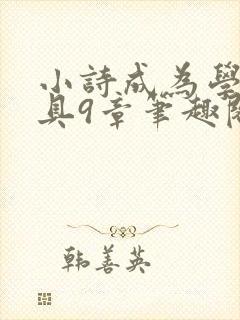 小詩成為學
具9章筆趣閣
韩善英